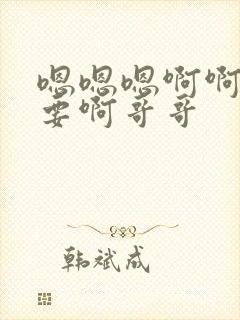 嗯嗯嗯啊啊
要啊哥哥
韩斌成